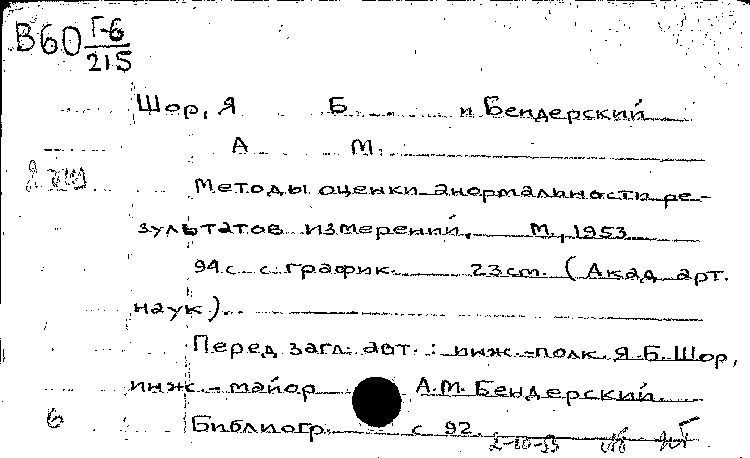 В60 Г-6
215
Шор, Я Б. и Бендерский
А М.
Методы оценки анормальности ре-
зультатов измерений, М., 1953
94 с с график. 23 cm. (Акад арт.
наук).
Перед загл. авт.: инж.-полк. Я. Б. Шор,
инж.-майор А.М. Бендерский.
6 Библиогр. с 92.